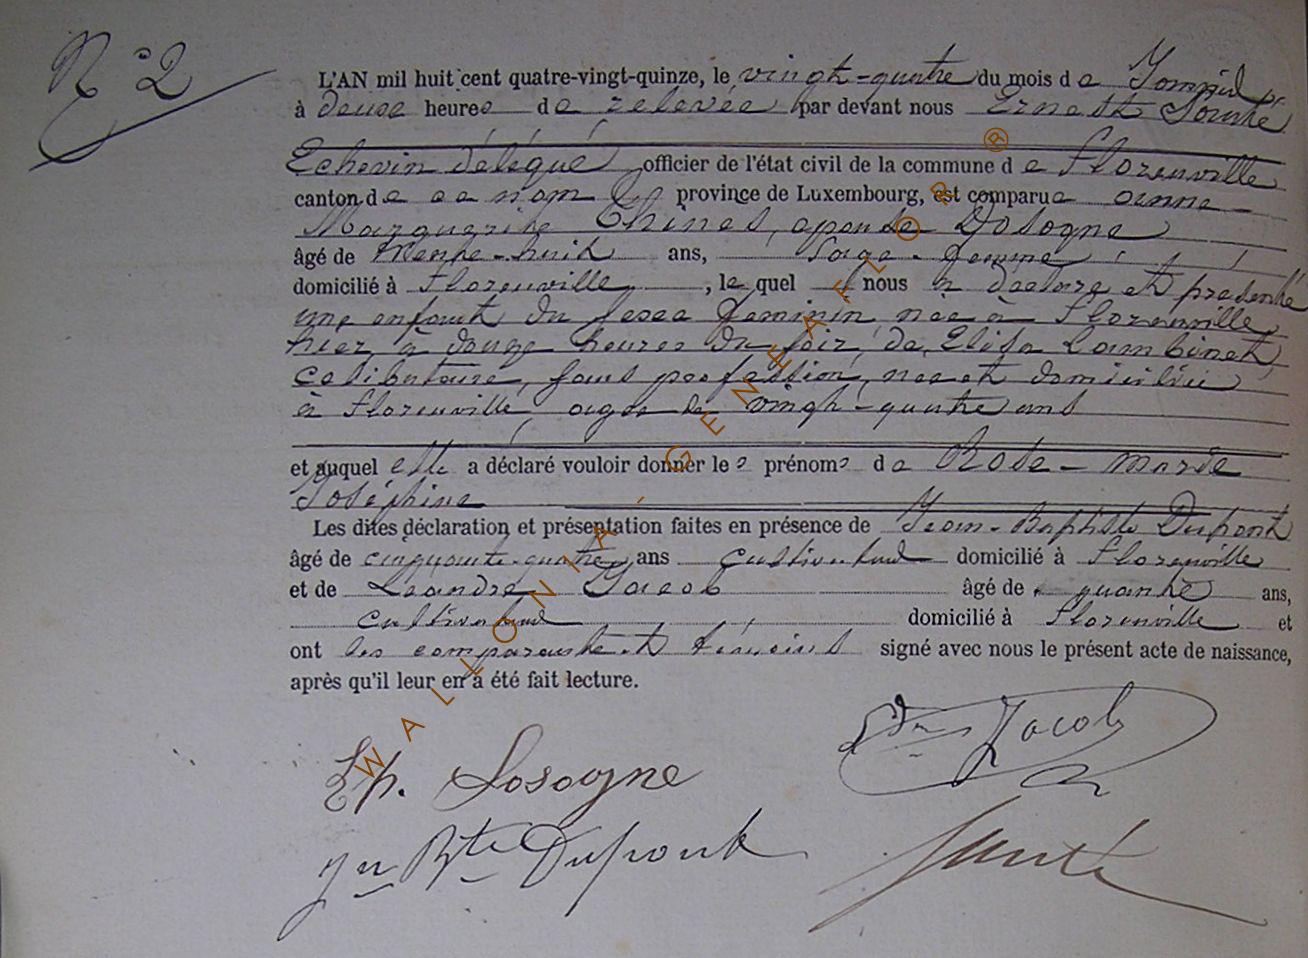 N° 2
L'AN mil huit cent quatre-vingt-quinze, le vingt-quatre du mois de
à deux heures de relevée par devant nous Ernest
Echevin délégué officier de l'état civil de la commune de Florenville
canton de ce nom province de Luxembourg, est comparue anne
Marguerite Thines, epouse Dosogne
âgé de trente-huit ans, Sage-femme
domicilié à Florenville, le quel nous a déclaré et présenté
une enfant du sexe féminin, née à Florenville
hier à douze heures du soir, de Elisa Lambinet,
celibataire, sans profession, née et domiciliée
à Florenville agée de vingt-quatre ans
et auquel elle a déclaré vouloir donner les prénoms de Rose-marie
Joséphine
Les dites déclaration et présentation faites en présence de Jean-Baptiste Dupont
âgé de cinquante-quatre ans cultivateur domicilié à Florenville
et de Léandre Jacob âgé de quarante ans,
cultivateur domicilié à Florenville et
ont les comparante et témoins signé avec nous le présent acte de naissance,
après qu'il leur en a été fait lecture.
Jacob
Ep. Dosogne
Jn Bte Dupont
WALLONIA-GENEAFLOR ®